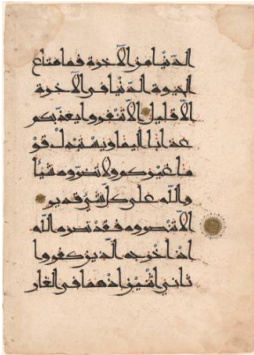 الدنيا من الآخرة فما متاع
الحيوة الدنيا في الآخرة
الا قليل الا تنفروا يعذبكم
عذابا اليما ويستبدل قو
ما غيركم ولا تضروه شيئا
والله على كل شئ قدير
الا تنصروه فقد نصره الله
اذ اخرجه الذين كفروا
ثاني اثنين اذ هما في الغار